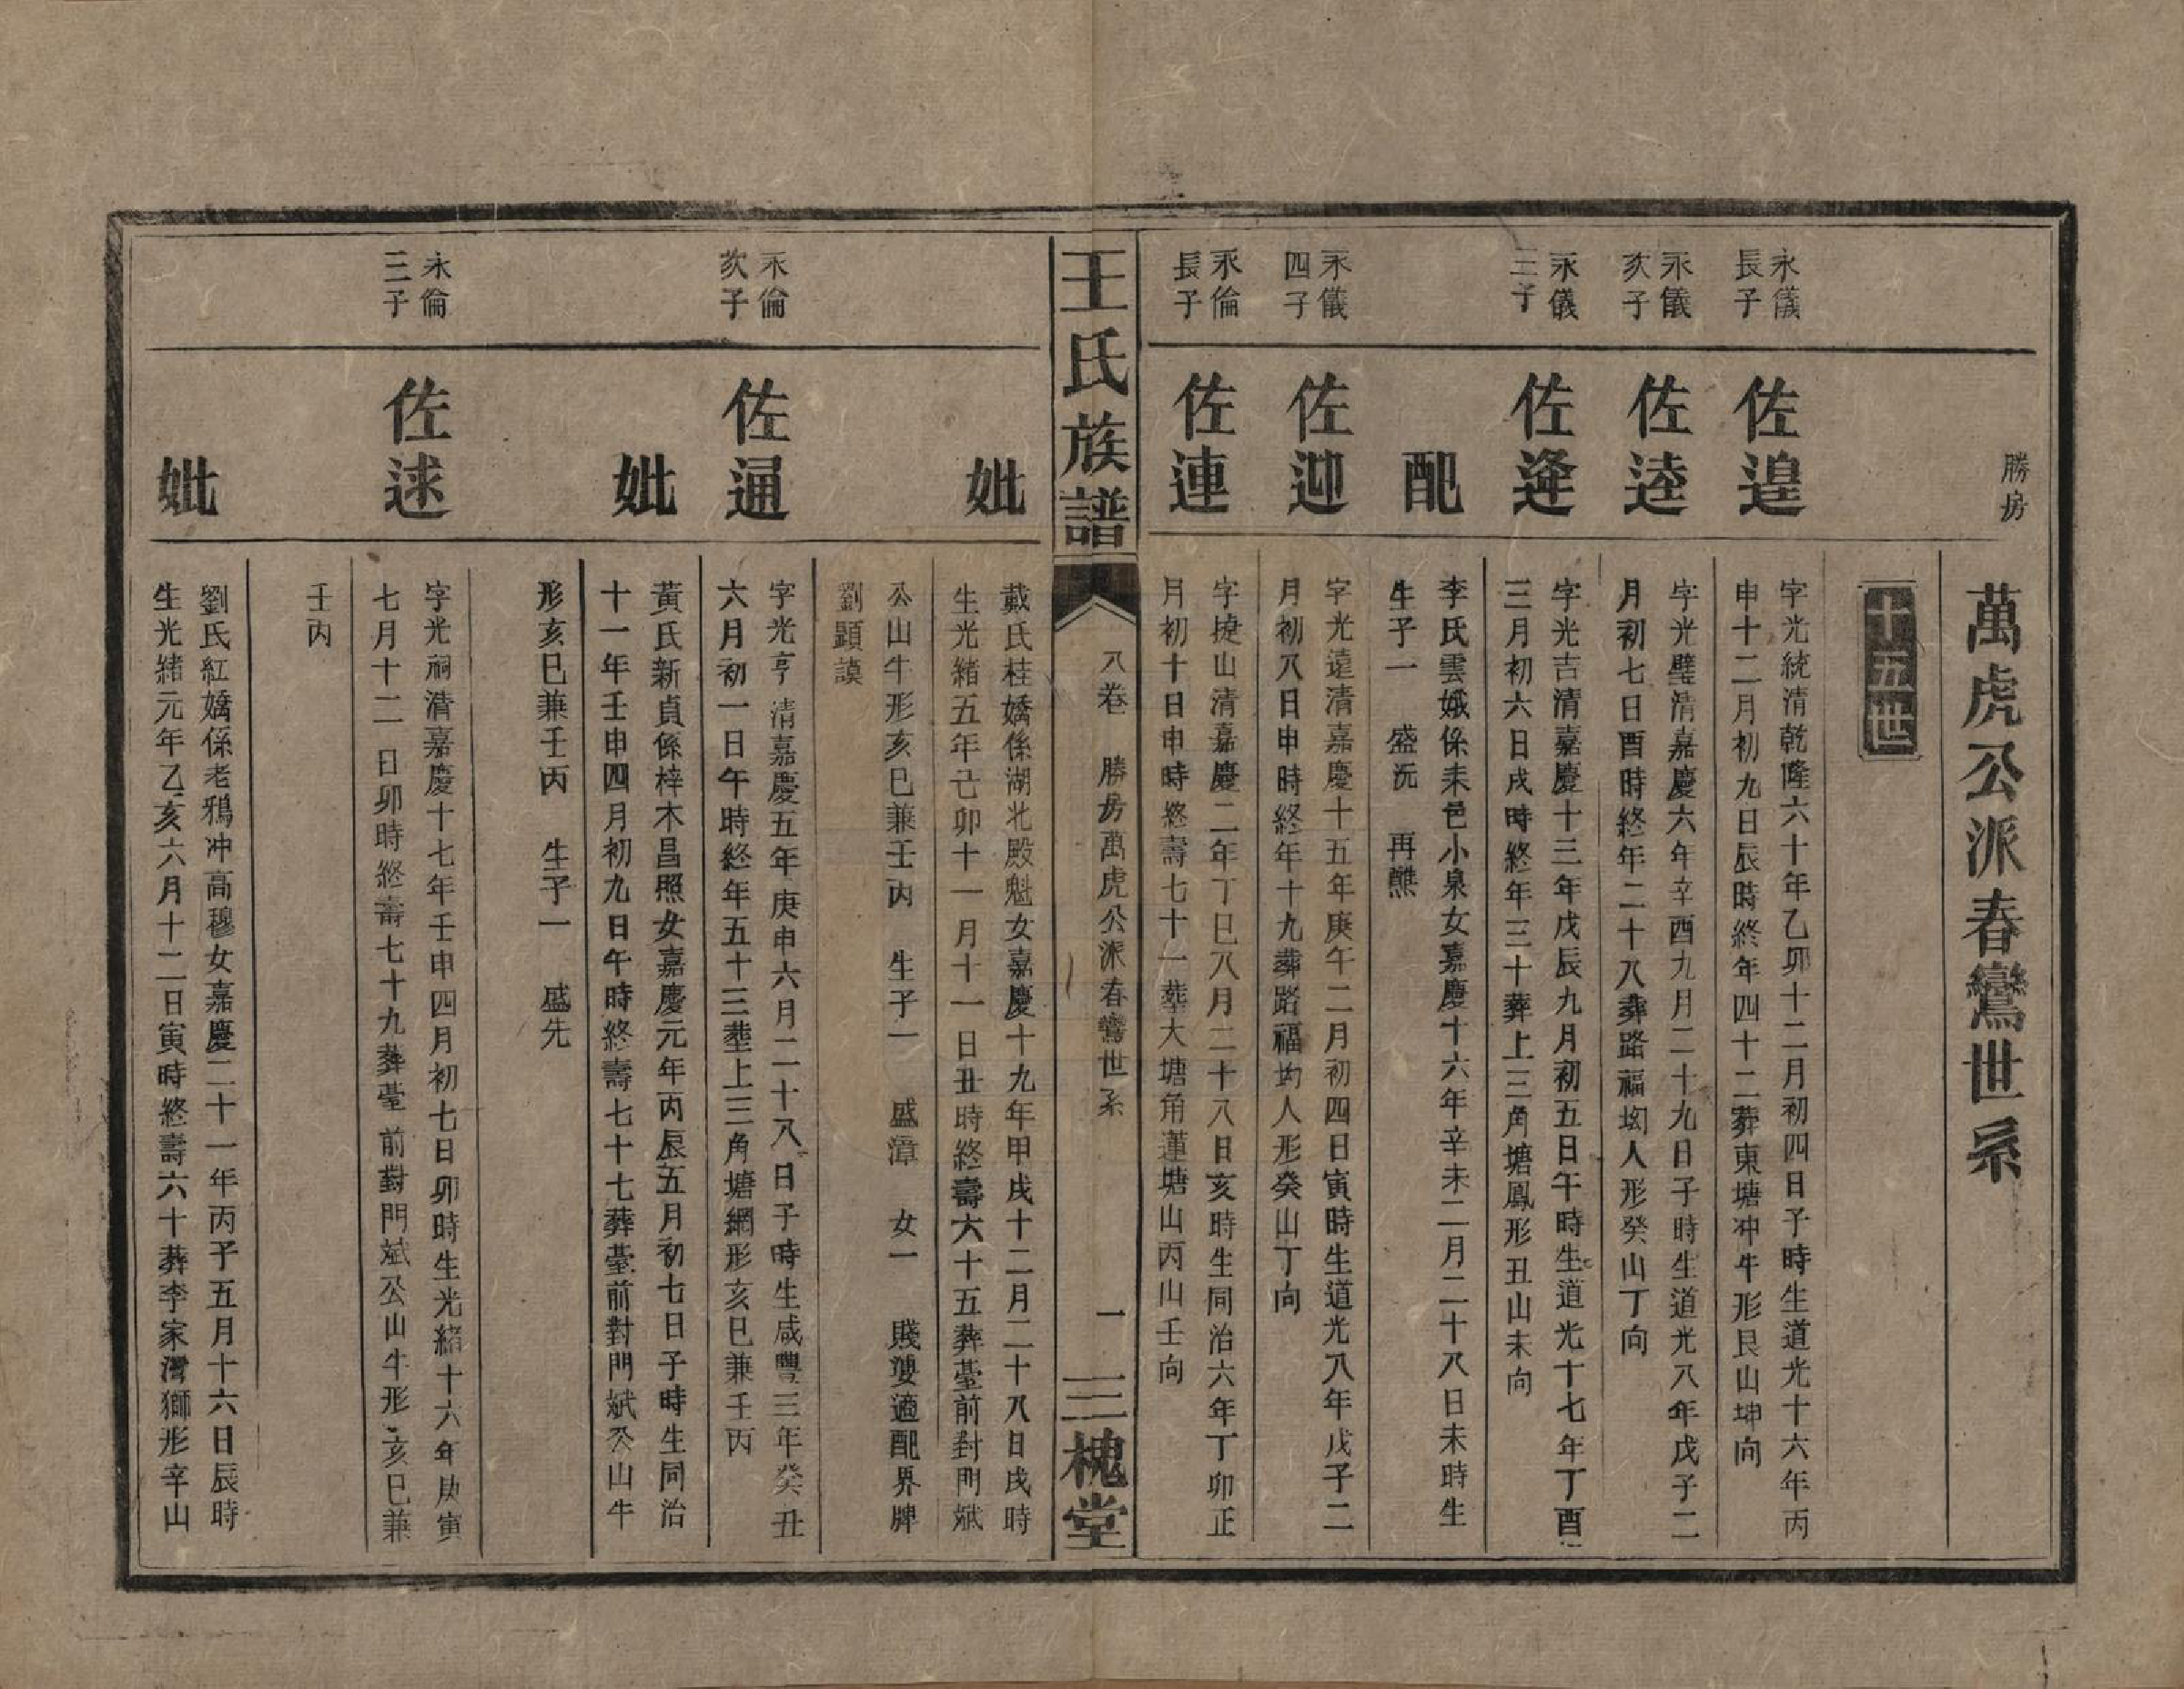 勝房
萬虎公派春鸞世系
十五世
永儀
長子
佐遑
字光統清乾隆六十年乙卯十二月初四日子時生道光十六年丙
申十二月初九日辰時終年四十二葬東塘冲牛形艮山坤向
永儀
次子
佐逵
字光璧清嘉慶六年辛酉九月二十九日子時生道光八年戊子二
月初七日酉時終年二十八葬路福坳人形癸山丁向
永儀
三子
佐逢
字光吉清嘉慶十三年戊辰九月初五日午時生道光十七年丁酉
三月初六日戌時終年三十葬上三角塘鳳形丑山未向
配
李氏雲娥係耒邑小泉女嘉慶十六年辛未二月二十八日未時生
生子一 盛沅 再醮
永儀
四子
佐迎
字光遠清嘉慶十五年庚午二月初四日寅時生道光八年戊子二
月初八日申時終年十九葬路福坳人形癸山丁向
永倫
長子
佐連
字捷山清嘉慶二年丁巳八月二十八日亥時生同治六年丁卯正
月初十日申時終壽七十一葬大塘角蓮塘山丙山壬向
王氏族譜
八卷 勝房萬虎公派春鸞世系
一
三槐堂
妣
戴氏桂嬌係湖北殿魁女嘉慶十九年甲戌十二月二十八日戌時
生光緒五年己卯十一月十一日丑時終壽六十五葬臺前對門斌
公山牛形亥巳兼壬丙 生子一 盛漳 女一 賤嫂適配界牌
劉顯謨
永倫
次子
佐通
字光亨 清嘉慶五年庚申六月二十八日子時生咸豐三年癸丑
六月初一日午時終年五十三葬上三角塘網形亥巳兼壬丙
妣
黃氏新貞係梓木昌照女嘉慶元年丙辰五月初七日子時生同治
十一年壬申四月初九日午時終壽七十七葬臺前對門斌公山牛
形亥巳兼壬丙 生子一 盛先
永倫
三子
佐逑
字光祠清嘉慶十七年壬申四月初七日卯時生光緒十六年庚寅
七月十二日卯時終壽七十九葬臺前對門斌公山牛形亥巳兼
壬丙
妣
劉氏紅嬌係老鴉冲高穆女嘉慶二十一年丙子五月十六日辰時
生光緒元年乙亥六月十二日寅時終壽六十葬李家灣獅形辛山